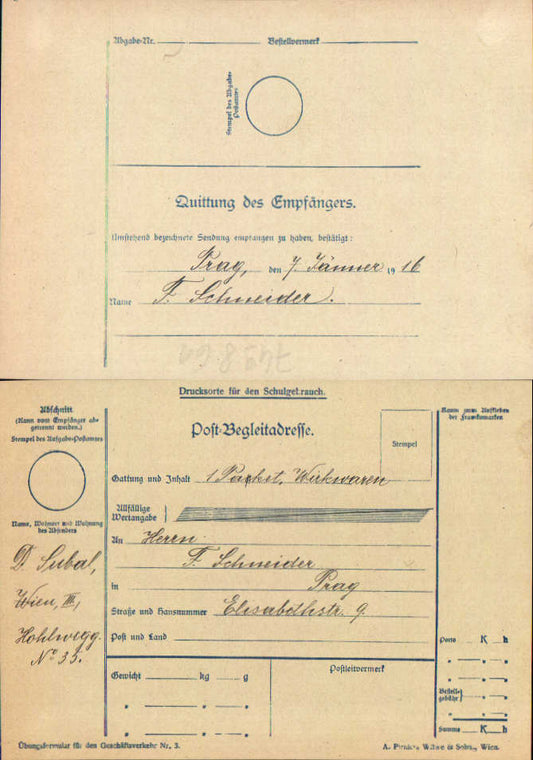 Abgabe-Nr. Bestellvermerk
Stempel des Abgabe-
Postamtes
Quittung des Empfängers.
Umstehend bezeichnete Sendung empfangen zu haben, bestätigt:
Prag, den 7. Jänner 1916
Name F. Schneider.
Drucksorte für den Schulgebrauch.
Abschnitt
(Kann vom Empfänger ab-
getrennt werden.)
Stempel des Aufgabs-Postamtes
Name, Wohnort und Wohnung
des Absenders
D. Subal,
Wien, III,
Hohlwegg.
No 35.
Post-Begleitadresse.
Stempel
Gattung und Inhalt 1 Packet, Wirkwaren
Allfällige
Wertangabe
An Herrn
F. Schneider
in Prag
Straße und Hausnummer Elisabethstr. 9.
Post und Land
Gewicht kg g
" " "
" " "
Postleitvermerk
Raum zum Aufkleben
der Frankomarken
Porto K h
" " "
" " "
Bestell-
gebühr " "
Summe K h
Übungsformular für den Geschäftsverkehr Nr. 3.
A. Pichlers Witwe & Sohn, Wien.